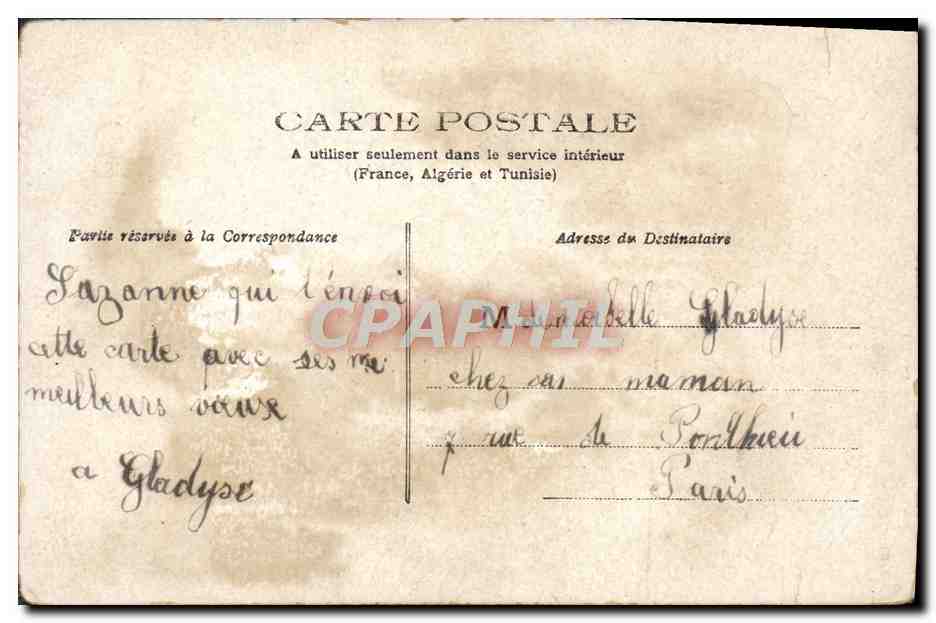 CARTE POSTALE
A utiliser seulement dans le service intérieur
(France, Algérie et Tunisie)
Partie réservée à la Correspondance
Adresse du Destinataire
Sazanne qui t'envoi
cette carte avec ses me
meilleurs vœux
a Gladyse
Mademoiselle Gladyse
chez sas maman
7 rue de Ponthieu
Paris
CPAPHIL